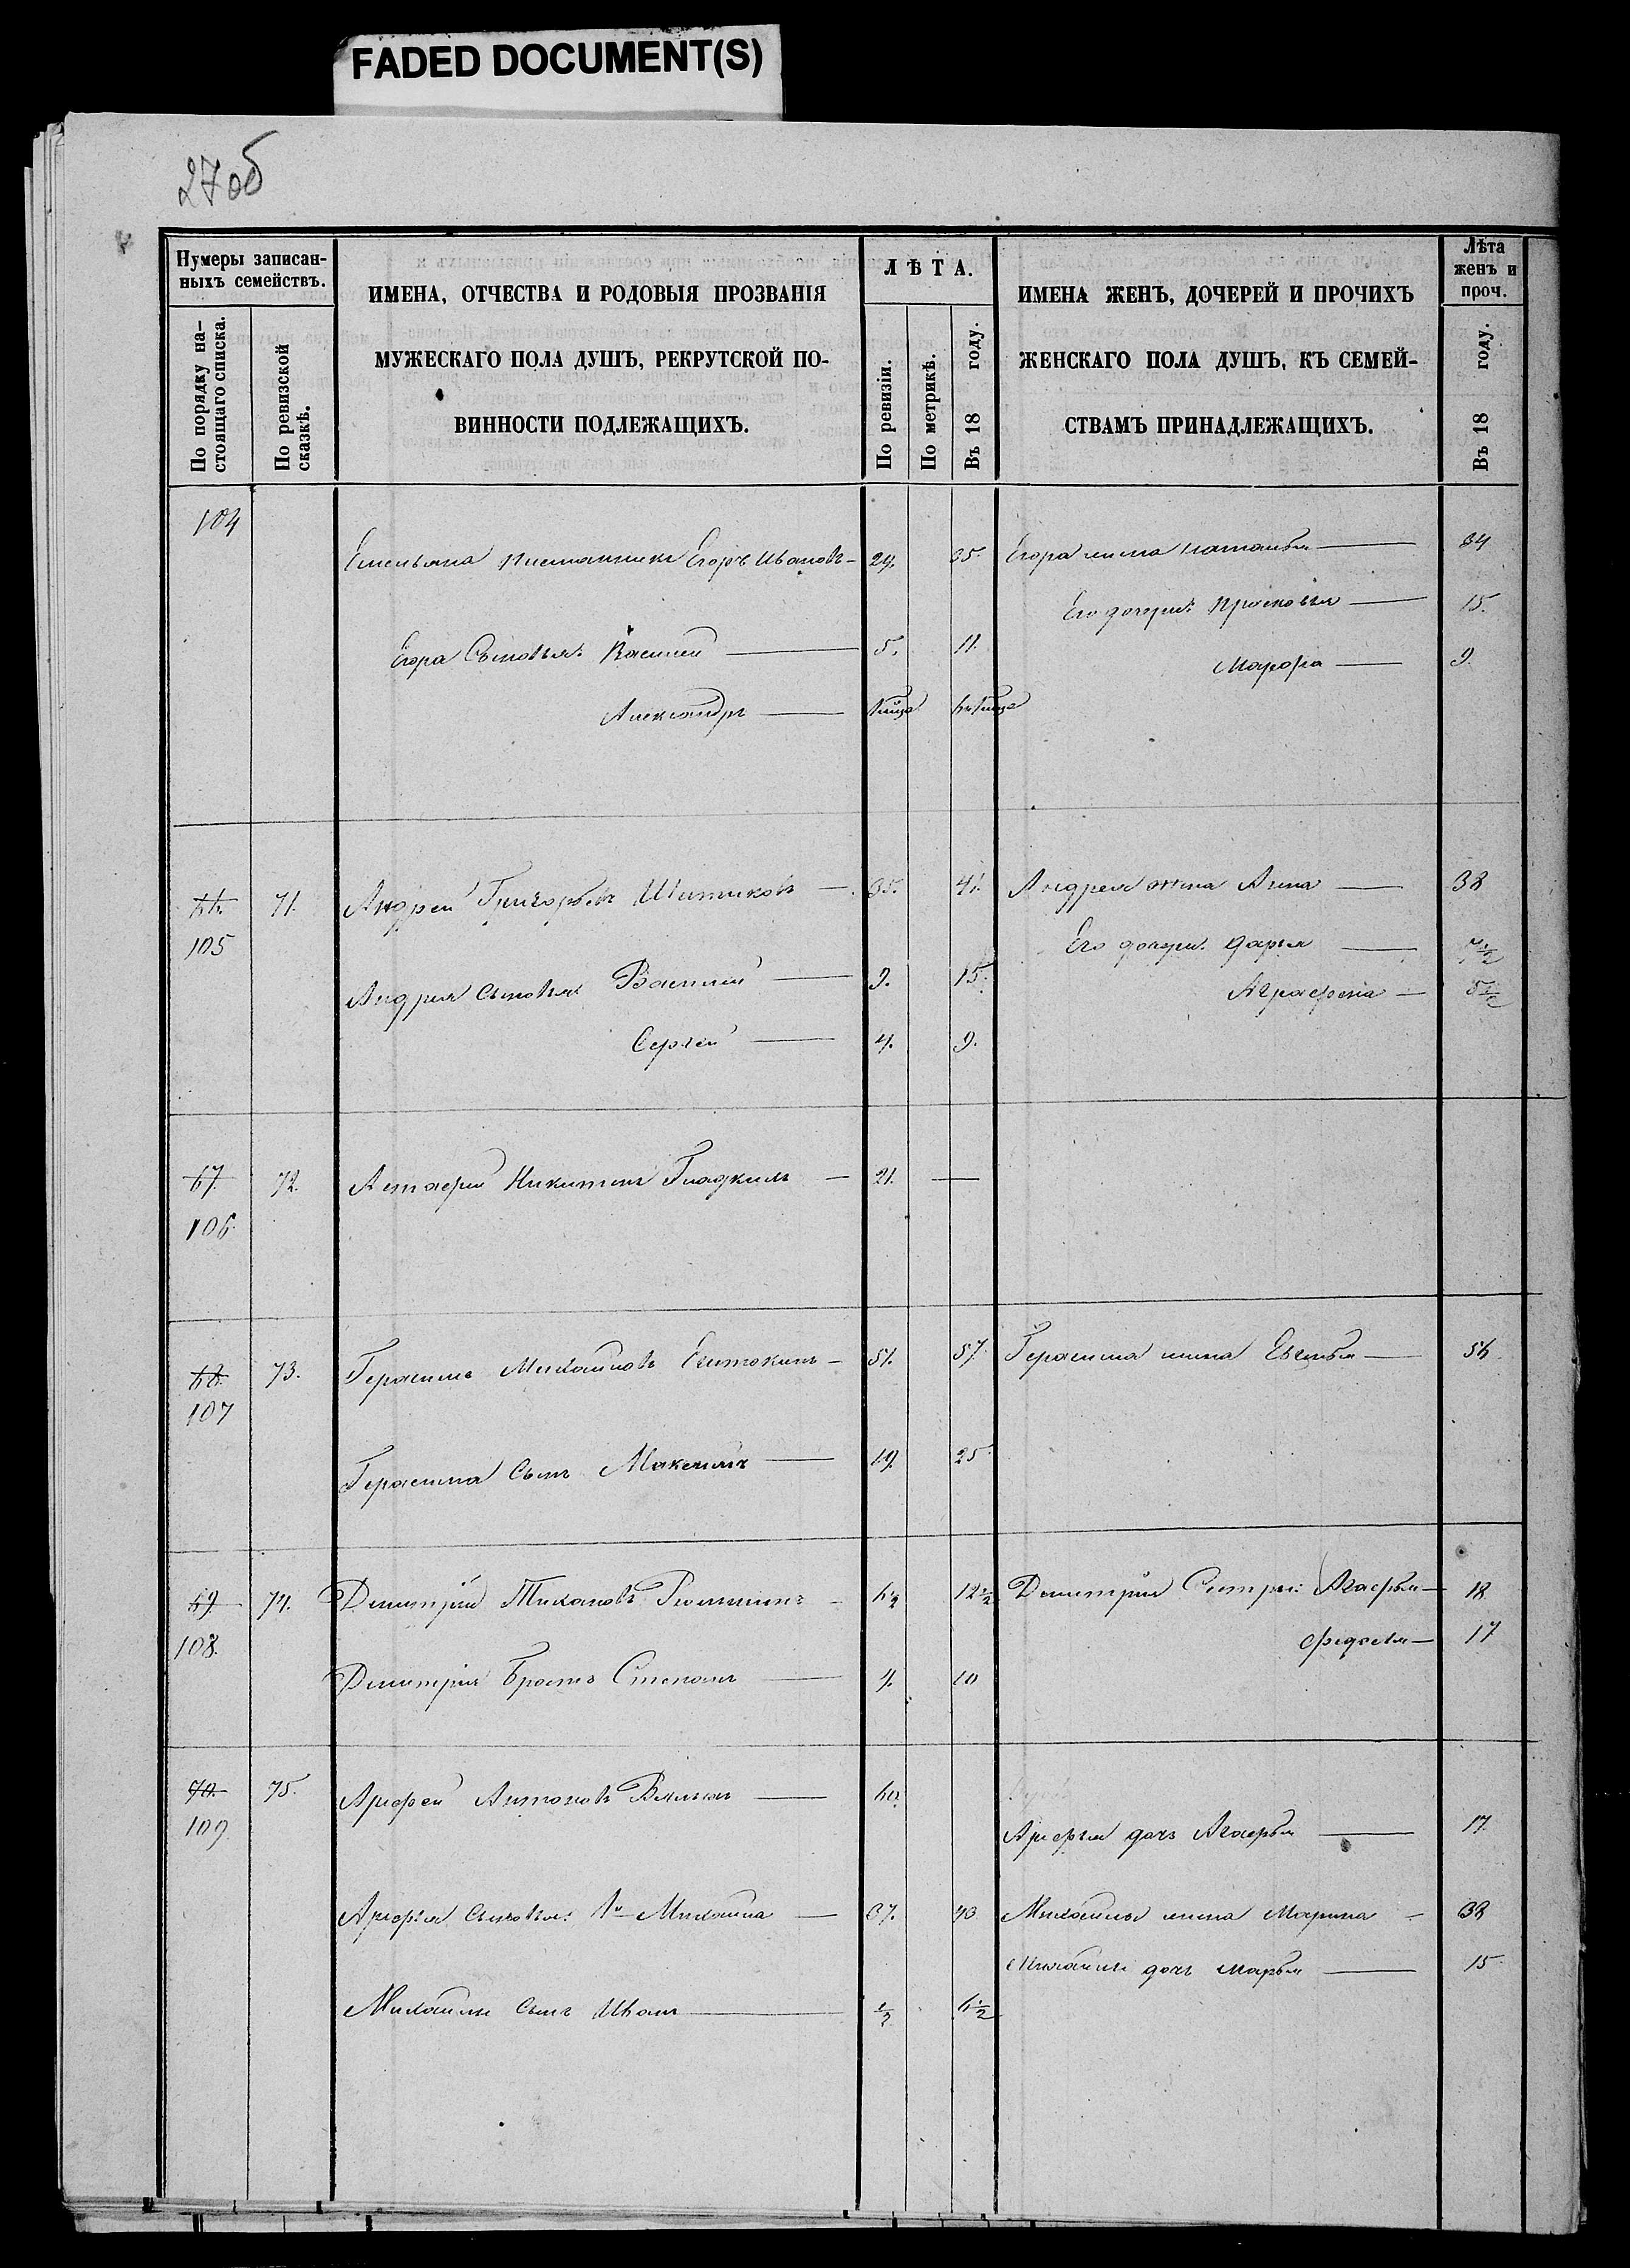 FADED DOCUMENT(S)
27 об
Нумеры записан-
ныхъ семействъ.
По порядку на-
стоящаго списка.
По ревизской
сказкѣ.
ИМЕНА, ОТЧЕСТВА И РОДОВЫЯ ПРОЗВАНІЯ
МУЖЕСКАГО ПОЛА ДУШЪ, РЕКРУТСКОЙ ПО-
ВИННОСТИ ПОДЛЕЖАЩИХЪ.
ЛѢТА.
По ревизіи.
По метрикѣ.
Въ 18 году.
ИМЕНА ЖЕНЪ, ДОЧЕРЕЙ И ПРОЧИХЪ
ЖЕНСКАГО ПОЛА ДУШЪ, КЪ СЕМЕЙ-
СТВАМЪ ПРИНАДЛЕЖАЩИХЪ.
Лѣта
женъ и
проч.
Въ 18 году.
104
Емельяна племянникъ Егоръ Ивановъ 29. 35. Егора жена Наталья 34
Его дочери: Прасковья 15.
Егора Сыновья: Василей 5. 11.
Марфа 9.
Александръ
66. 71. Андрей Григорьевъ Шитиковъ 35. 41. Андрея жена Анна 38
105
Его дочери: Дарья 7 1/2
Андрея сыновья: Василий 9. 15.
Аграфена 5 1/2
Сергей 4. 9.
67. 72. Астафий Никитинъ Гладкихъ 21. —
106.
68. 73. Герасимъ Михайловъ 51. 57. Герасима жена Евгенья 56
107
Герасима Сынъ Максимъ 19. 25.
69. 74. Димитрий Тихановъ 6 1/2 12 1/2 Димитрия Сестры: Агафья 18.
108.
Федосья 17
Димитрия братъ Степанъ 4. 10
70. 75. Арефей Антоновъ 60
109.
Арефья дочь Агафья 17.
Арефья сыновья: 1й Михайла 37. 43. Михайлы жена Марина 38
Михайлы дочь Марья 15
Михайлы сынъ Иванъ 1/2 6 1/2